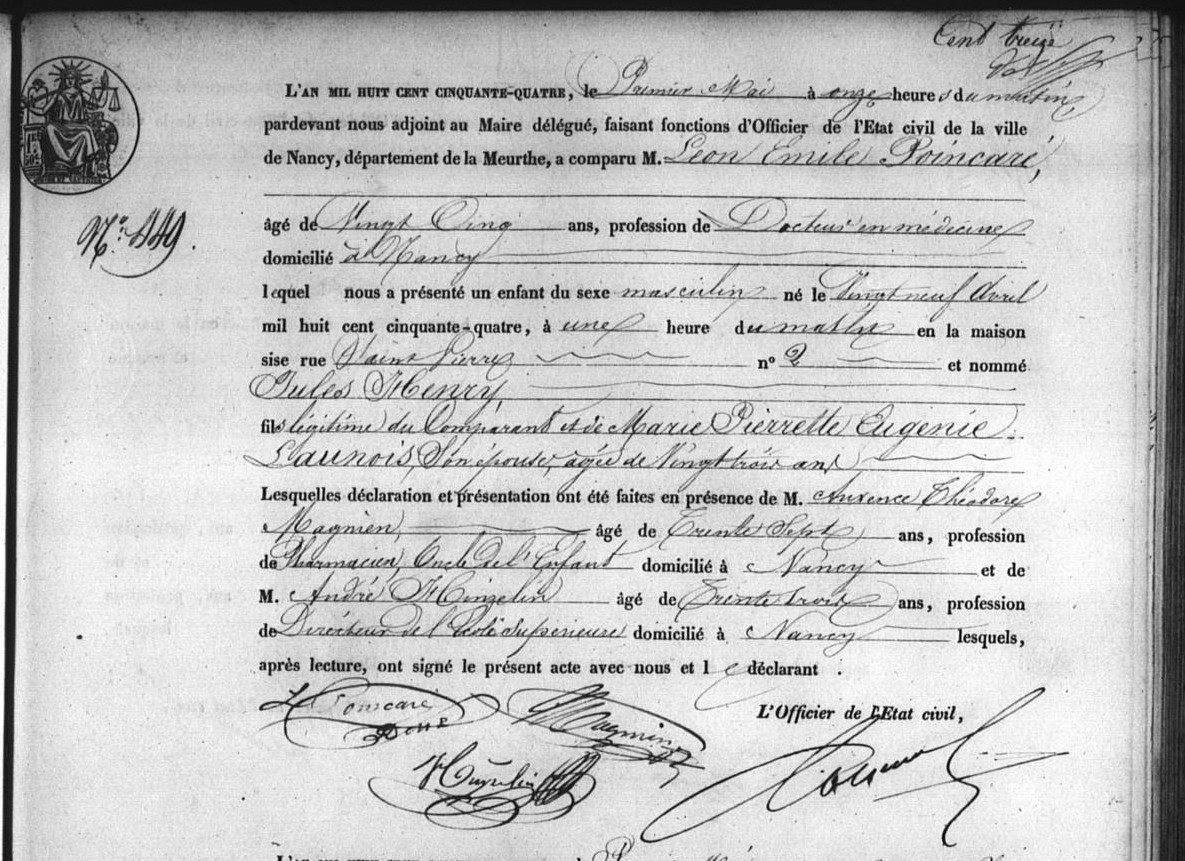 Cent treize
L'AN MIL HUIT CENT CINQUANTE-QUATRE, le Premier Mai à onze heures du matin
pardevant nous adjoint au Maire délégué, faisant fonctions d'Officier de l'Etat civil de la ville
de Nancy, département de la Meurthe, a comparu M. Léon Emile Poincaré,
N.º 449.
âgé de Vingt Cinq ans, profession de Docteur en médecine
domicilié à Nancy
lequel nous a présenté un enfant du sexe masculin né le Vingt neuf Avril
mil huit cent cinquante-quatre, à une heure du matin en la maison
sise rue Saint Pierre nº 2 et nommé
Jules Henry,
fils légitime du Comparant et de Marie Pierrette Eugénie
Launois, Son épouse, agée de Vingt trois ans
Lesquelles déclaration et présentation ont été faites en présence de M. Auxence Théodore
Magnien, âgé de Trente Sept ans, profession
de Pharmacien, Oncle de l'Enfant domicilié à Nancy et de
M. André Hinzelin âgé de Trente trois ans, profession
de Directeur de l'Ecole Supérieure domicilié à Nancy lesquels,
après lecture, ont signé le présent acte avec nous et le déclarant .
Poincaré
Magnien
L'Officier de l'Etat civil,
Hinzelin
L'AN MIL HUIT CENT